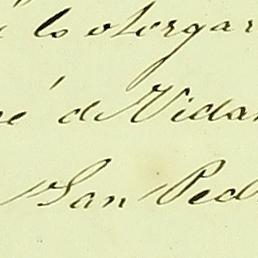 lo otorgar
de Vidau
San Ped